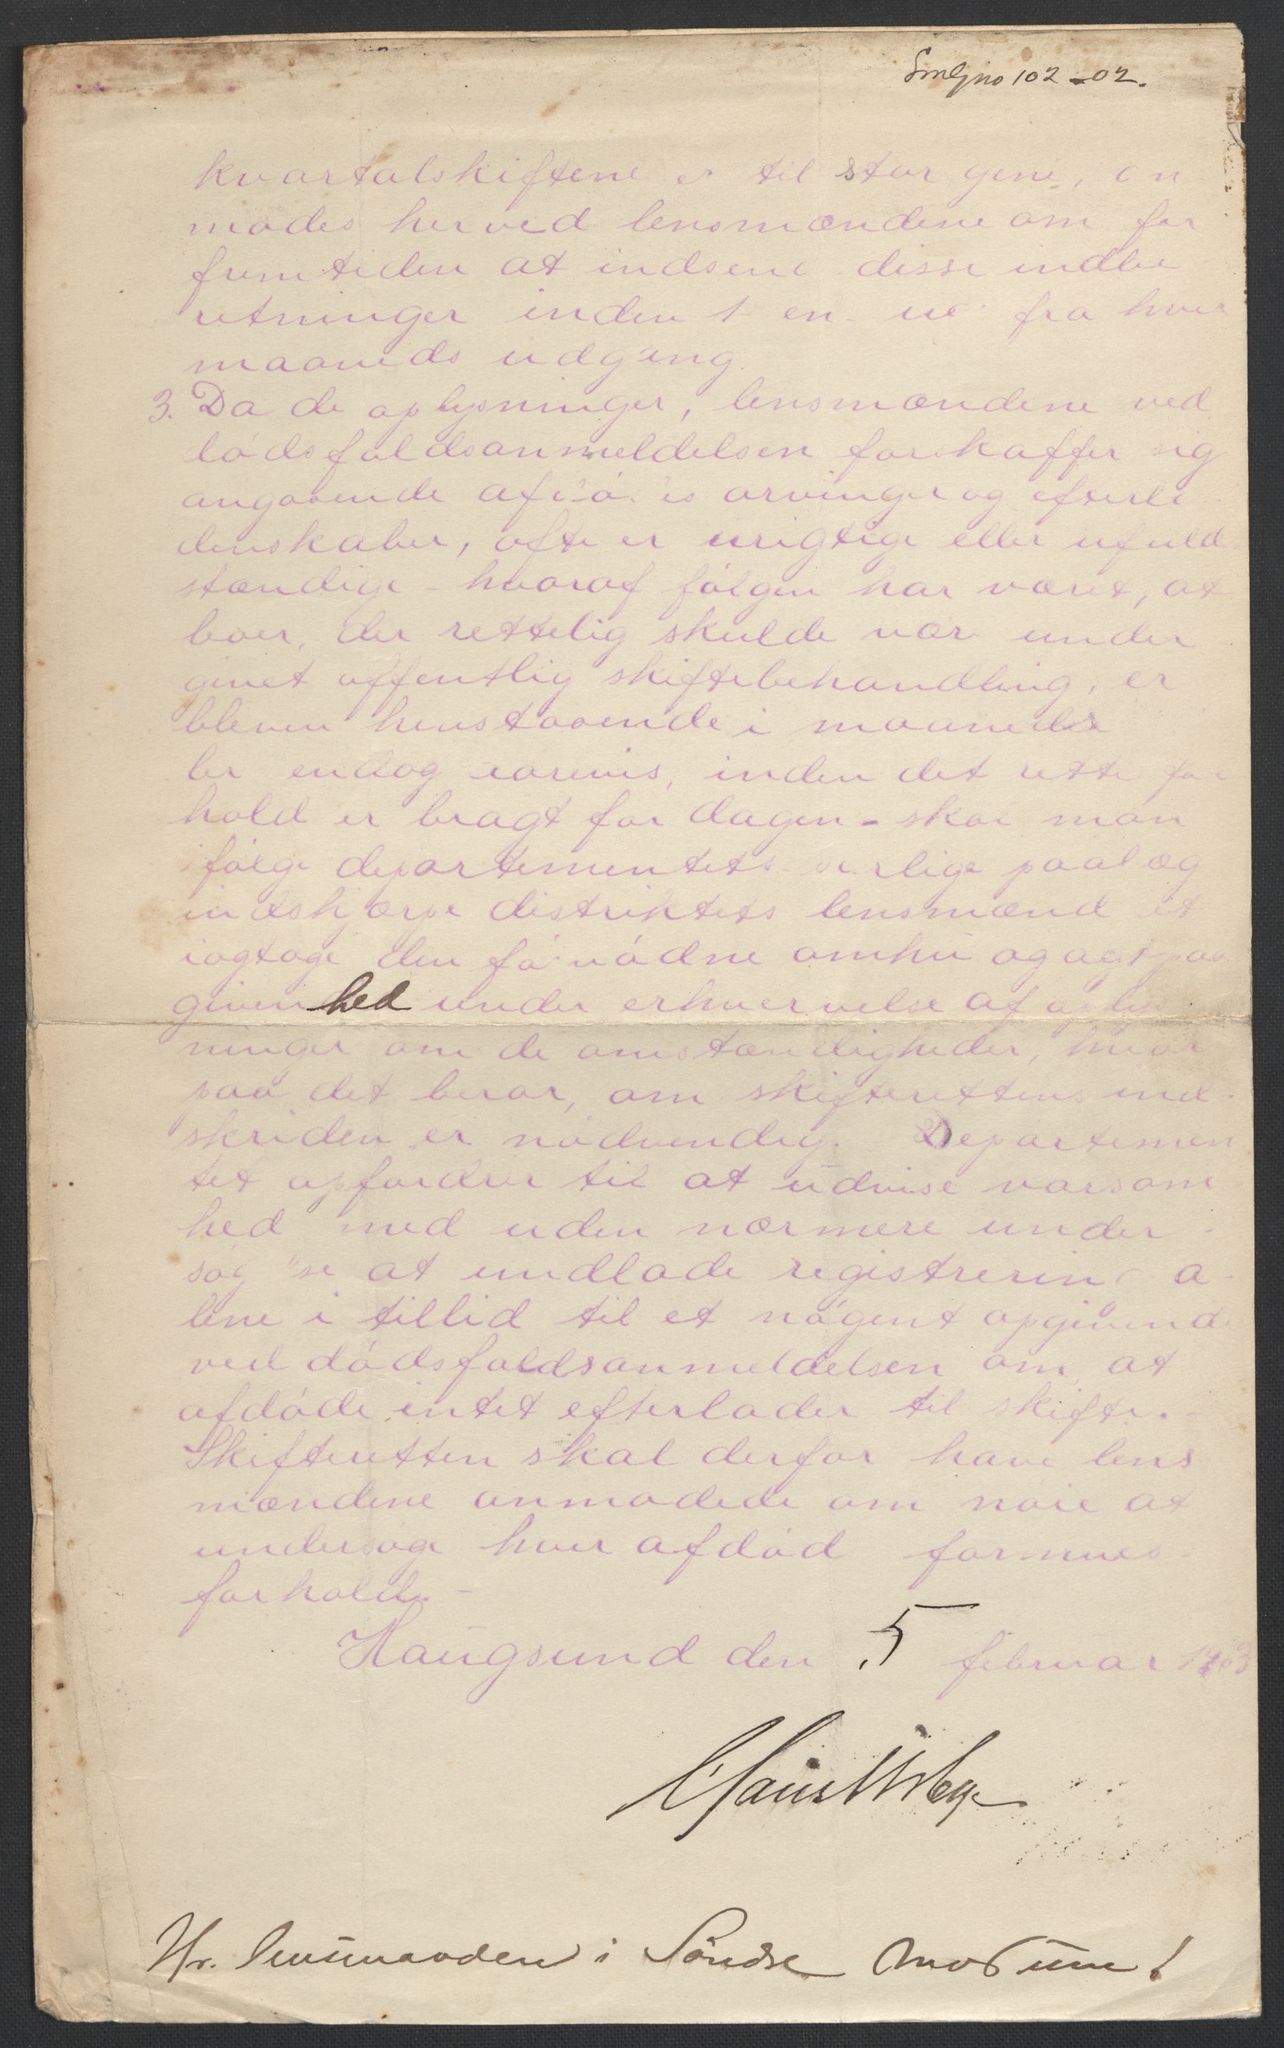 102-02.
kvartalskiftene er til stor gene, an
modes herved lensmændene om for
fremtiden at indsende disse indbe
retninger inden 1 en uge fra hver
maaneds udgang.
3. Da de oplysninger, lensmændene ved
dödsfaldsanmeldelsen forskaffer sig
angaaende afdödes arvinger og efterla
denskaber, ofte er urigtige eller ufuld
stændige - hvoraf fölgen har været, at
boer, der rettelig skulde være under
givet offentlig skiftebehandling, er
bleven henstaaende i maaneder
ler endog aarevis, inden det rette for
hold er bragt for dagen - skal man
ifölge departementets paalæg
indskjærpe distriktets lensmænd at
iagtage den fornödne omhu og agtpaa
givenhed under erhvervelse af oplys
ninger om de omstændigheder, hvor
paa det beror, om skifterettens ind-
skriden er nödvendig. Departemen
tet opfordrer til at udvise varsom
hed med uden nærmere under-
sögelse at undlade registrering a-
lene i tillid til et nögent opgivende
ved dödsfaldsanmeldelsen om, at
afdöde intet efterlader til skifte. -
Skifteretten skal derfor have lens
mændene anmodede om nöie at
undersöge hver afdöd formues-
forholde. -
Haugsund den 5 februar 1903
Hr. lensmanden i Söndre Modum!